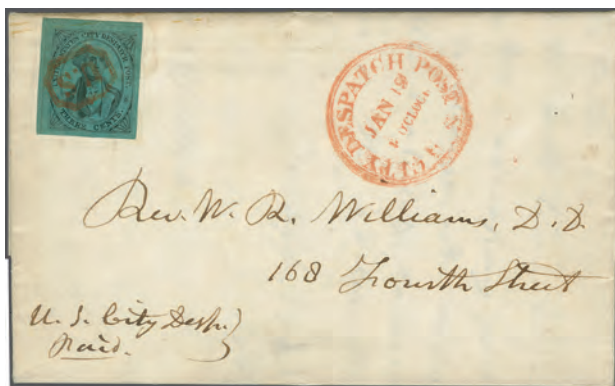 UNITED STATES CITY DESPATCH POST
THREE CENTS.
U.S.
CITY DESPATCH POST
JAN 19
O'CLOCK
Rev. W. R. Williams, D.D.
168 Fourth Street
U. S. City Desp.
Paid.